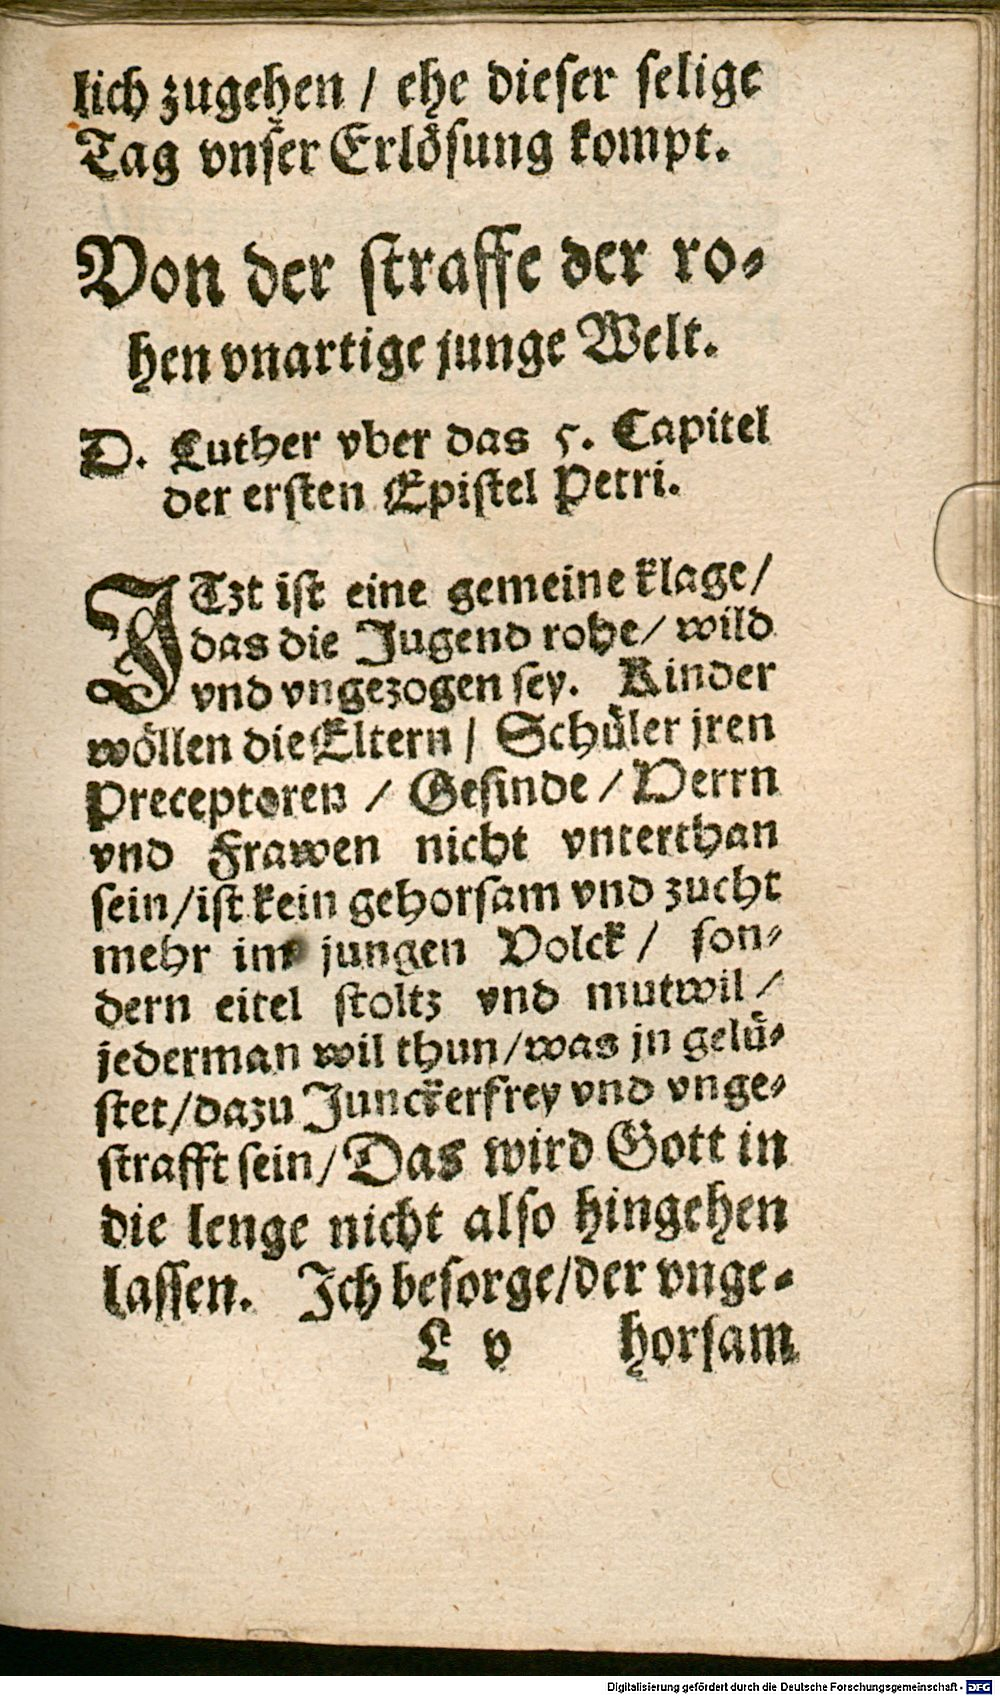 lich zugehen / ehe dieser selige
Tag vnser Erlösung kompt.
Von der straffe der ro-
hen vnartige junge Welt.
D. Luther vber das 5. Capitel
der ersten Epistel Petri.
JTzt ist eine gemeine klage/
das die Jugend rohe/ wild
vnd vngezogen sey. Kinder
wöllen die Eltern / Schüler jren
Preceptoren / Gesinde / Herrn
vnd Frawen nicht vnterthan
sein/ist kein gehorsam vnd zucht
mehr im jungen Volck / son-
dern eitel stoltz vnd mutwil /
jederman wil thun/was jn gelü-
stet/dazu Junckerfrey vnd vnge-
strafft sein/ Das wird Gott in
die lenge nicht also hingehen
lassen. Ich besorge/der vnge-
L v horsam
Digitalisierung gefördert durch die Deutsche Forschungsgemeinschaft - DFG